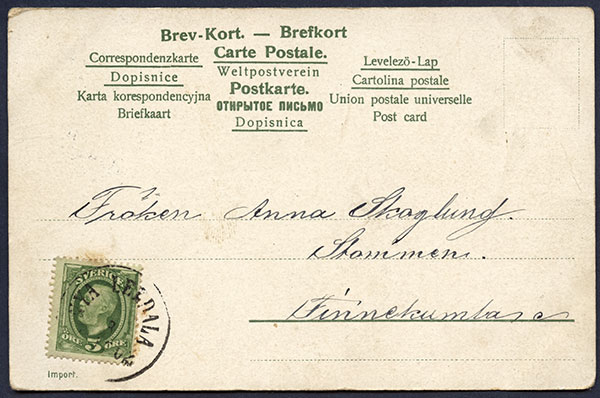 Brev-Kort. — Brefkort
Correspondenzkarte Carte Postale. Levelezö-Lap
Dopisnice Weltpostverein Cartolina postale
Karta korespondencyjna Postkarte. Union postale universelle
Briefkaart ОТКРЫТОЕ ПИСЬМО Post card
Dopisnica
Fröken Anna Skoglund.
Stommen.
Finnekumla
SVERIGE
5
ÖRE ÖRE
Import.